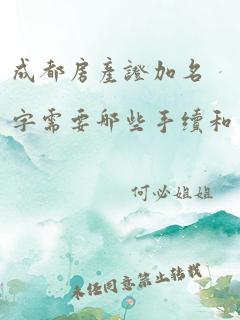 成都房產證加名
字需要哪些手續和
何必姐姐
未经同意禁止转载